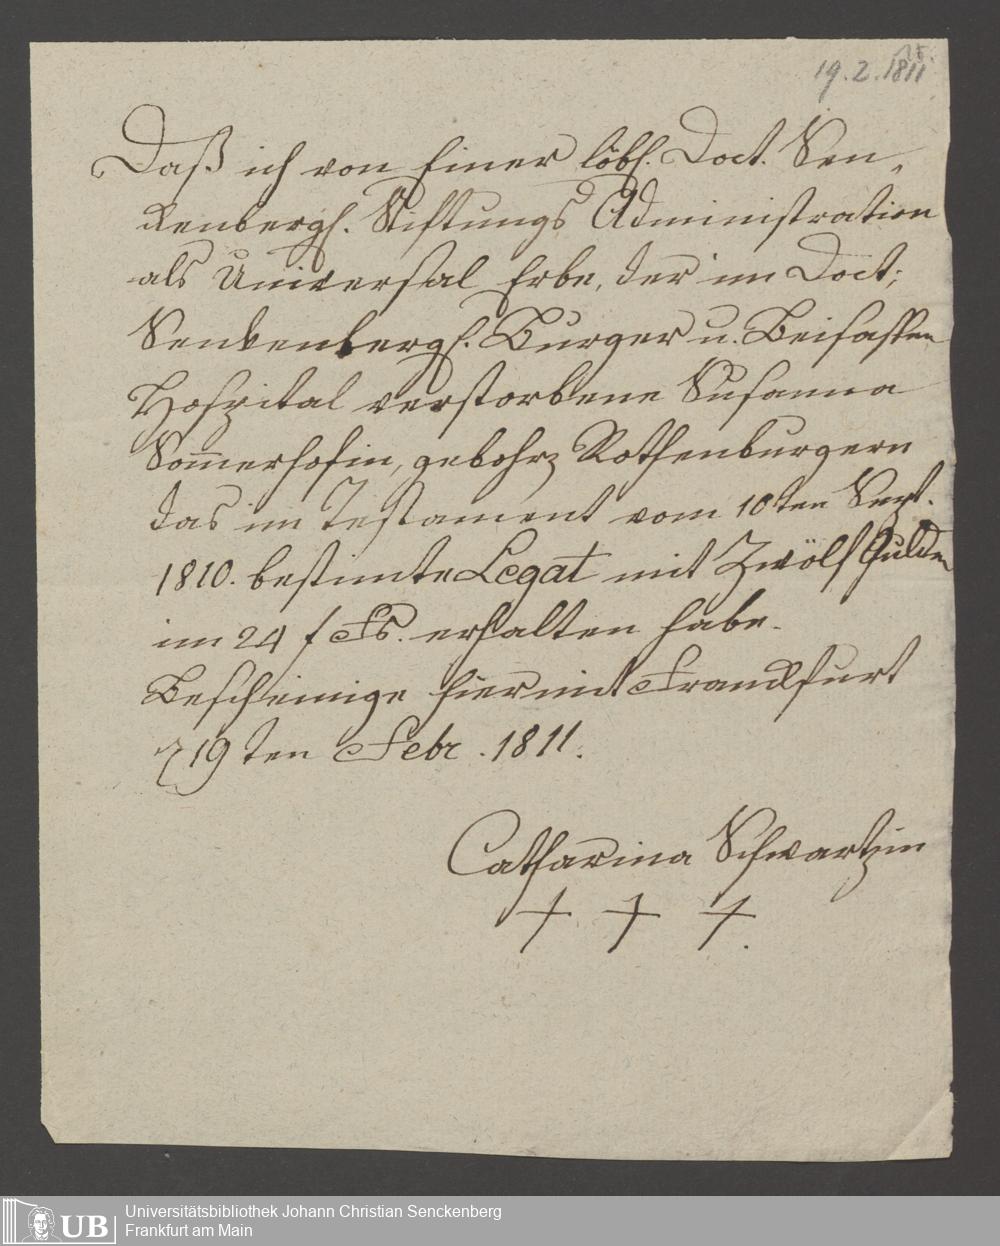 19. 2. 1811
Daß ich von Einer löbl. Doct. Sen„
kenbergs. Stiftungs Administration
als Universal Erbe, der im Doct;
Senkenbergs. Burger u. Beisassen
Hospital verstorbene Susanna
Som̄erhofin, gebohr; Rothenburgern
das im Testament vom 10ten Sept.
1810. bestimte Legat mit Zwölf Gulden
im 24 f Fs. erhalten habe.
Bescheinige hiermit Frankfurt
19ten Febr. 1811.
Catharina Schwartzin
+ + +.
UB
Universitätsbibliothek Johann Christian Senckenberg
Frankfurt am Main